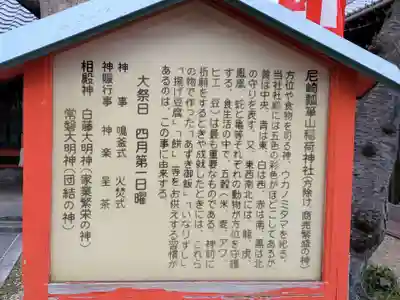 尼崎瓢箪山稲荷神社(方除け、商売繁盛の神)
方位や食物を司る神、ウカノミタマを祀る。
当社社殿には五色の彩色がほどこしてあるが、
黄は中央、青は東、白は西、赤は南、黒は北
の守りを表す。又、東西南北には、龍、虎、
鳳凰、蛇と亀等それぞれの動物が方位を守護
する。食生活の中で、五穀(米、麦、アワ、
ヒエ、豆)は最重要なものである。神前に
祈願をするときや成就したときには、これら
の物で作った「あずき御飯」「いなりずし」
「揚げ豆腐」「餅」等をお供えする習慣が
あるのは、この事に由来する。
大祭日 四月第一日曜
神事 鳴釜式 火焚式
神賑行事 神楽 呈茶
相殿神 白藤大明神(家業繁栄の神)
常磐大明神(団結の神)